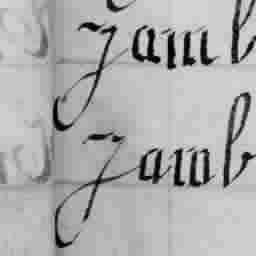 Jamb
Jamb